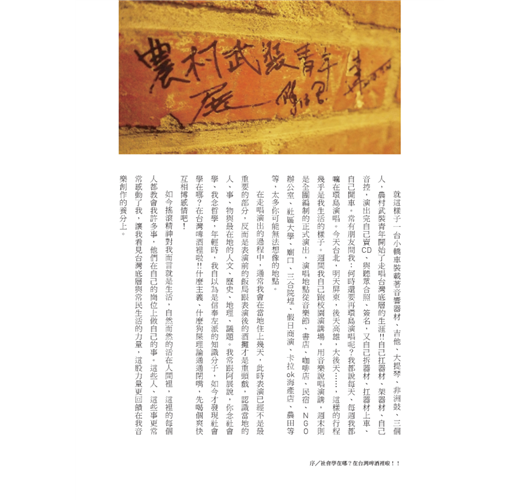 農村武裝青年
展
就這樣子一台小轎車裝載著音響器材、吉他、大提琴、非洲鼓、三個
人，農村武裝青年開始了走唱台灣底層的生涯!!自己扛器材、架器材、自己
音控，演出完自己賣CD，與聽眾合照、簽名，又自己拆器材、扛器材上車，
自己開車。常有朋友問我：何時還要再環島演唱呢？我都說每天、每週我都
嘛在環島演唱。今天台北，明天屏東，後天高雄，大後天……，這樣的行程
幾乎是我生活的樣子，週間我自己跑校園演講場，用音樂說唱演講，週末則
是全團編制的正式演出，演唱地點從音樂節、書店、咖啡店、民宿、NGO
辦公室、社區大學、廟口、三合院埕、假日商演、卡拉ok海產店、農田等
等，太多你可能無法想像的地點。
在走唱演出的過程中，通常我會在當地住上幾天，此時表演已經不是最
重要的部分，反而是表演前的飯局跟表演後的酒攤才是重頭戲，認識當地的
人、事、物與最在地的人文、歷史、地理、議題。我常跟阿展說，你念社會
學，我念哲學，年輕時，我自以為是信奉左派的知識分子，如今才發現社會
學在哪？在台灣啤酒啦!!什麼主義、什麼狗屁理論通通閉嘴，先喝個爽快
互相博感情吧！
如今搖滾精神對我而言就是生活，自然而然的活在人間裡，這裡的每個
人都教會我許多事，他們在自己的崗位上做自己的事，這些人、這些事更常
常感動了我，讓我看見台灣底層與常民生活的力量，這股力量更回饋在我音
樂創作的養分上。
序／社會學在哪？在台灣啤酒裡啦！！